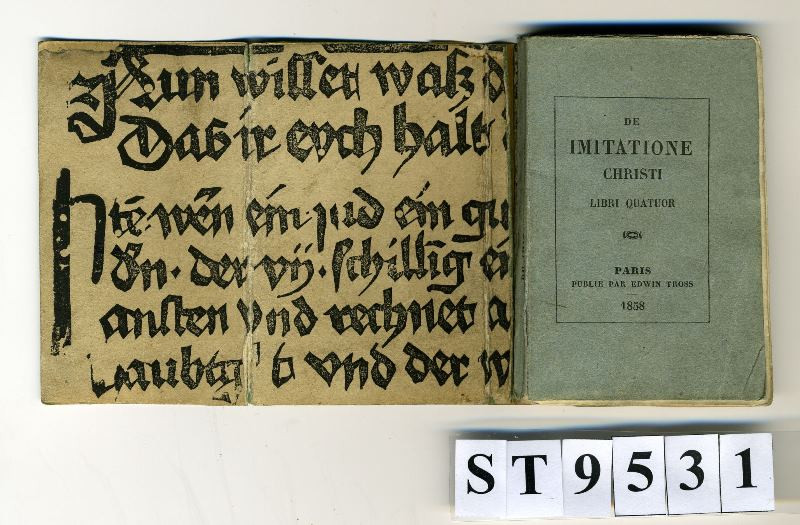 Nun wisset wasz d
Das ir euch halt
te wen ein jud ein gu
dn. der vij. schilling ei
ansten vnd rechnet a
laubt vnd der w
DE
IMITATIONE
CHRISTI
LIBRI QUATUOR
PARIS
PUBLIE PAR EDWIN TROSS
1858
ST9531